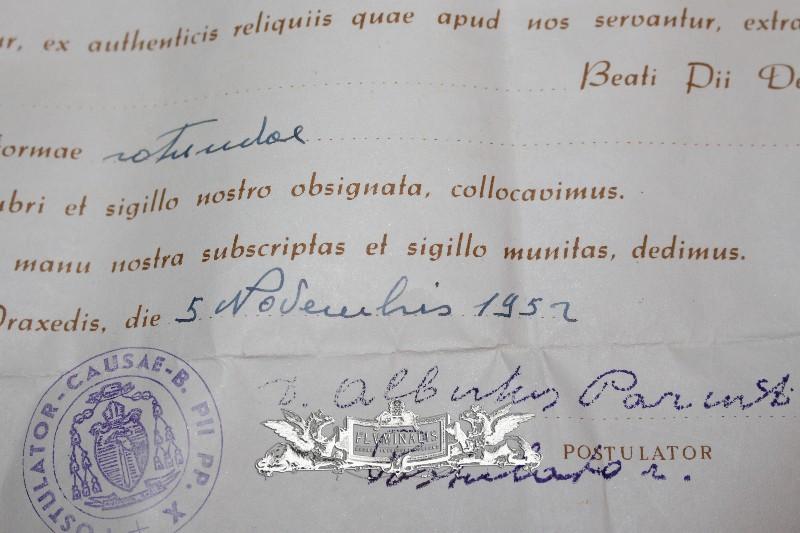 ur, ex authenticis reliquiis quae apud nos servantur, extra
Beati Pii De
formae rotundae
ubri et sigillo nostro obsignata, collocavimus.
manu nostra subscriptas et sigillo munitas, dedimus.
Praxedis, die 5 Novembris 1952
D. Albertus Parenti
POSTULATOR
Postulator.
POSTULATOR-CAUSAE-B. PII PP. X
FLUMINALIS